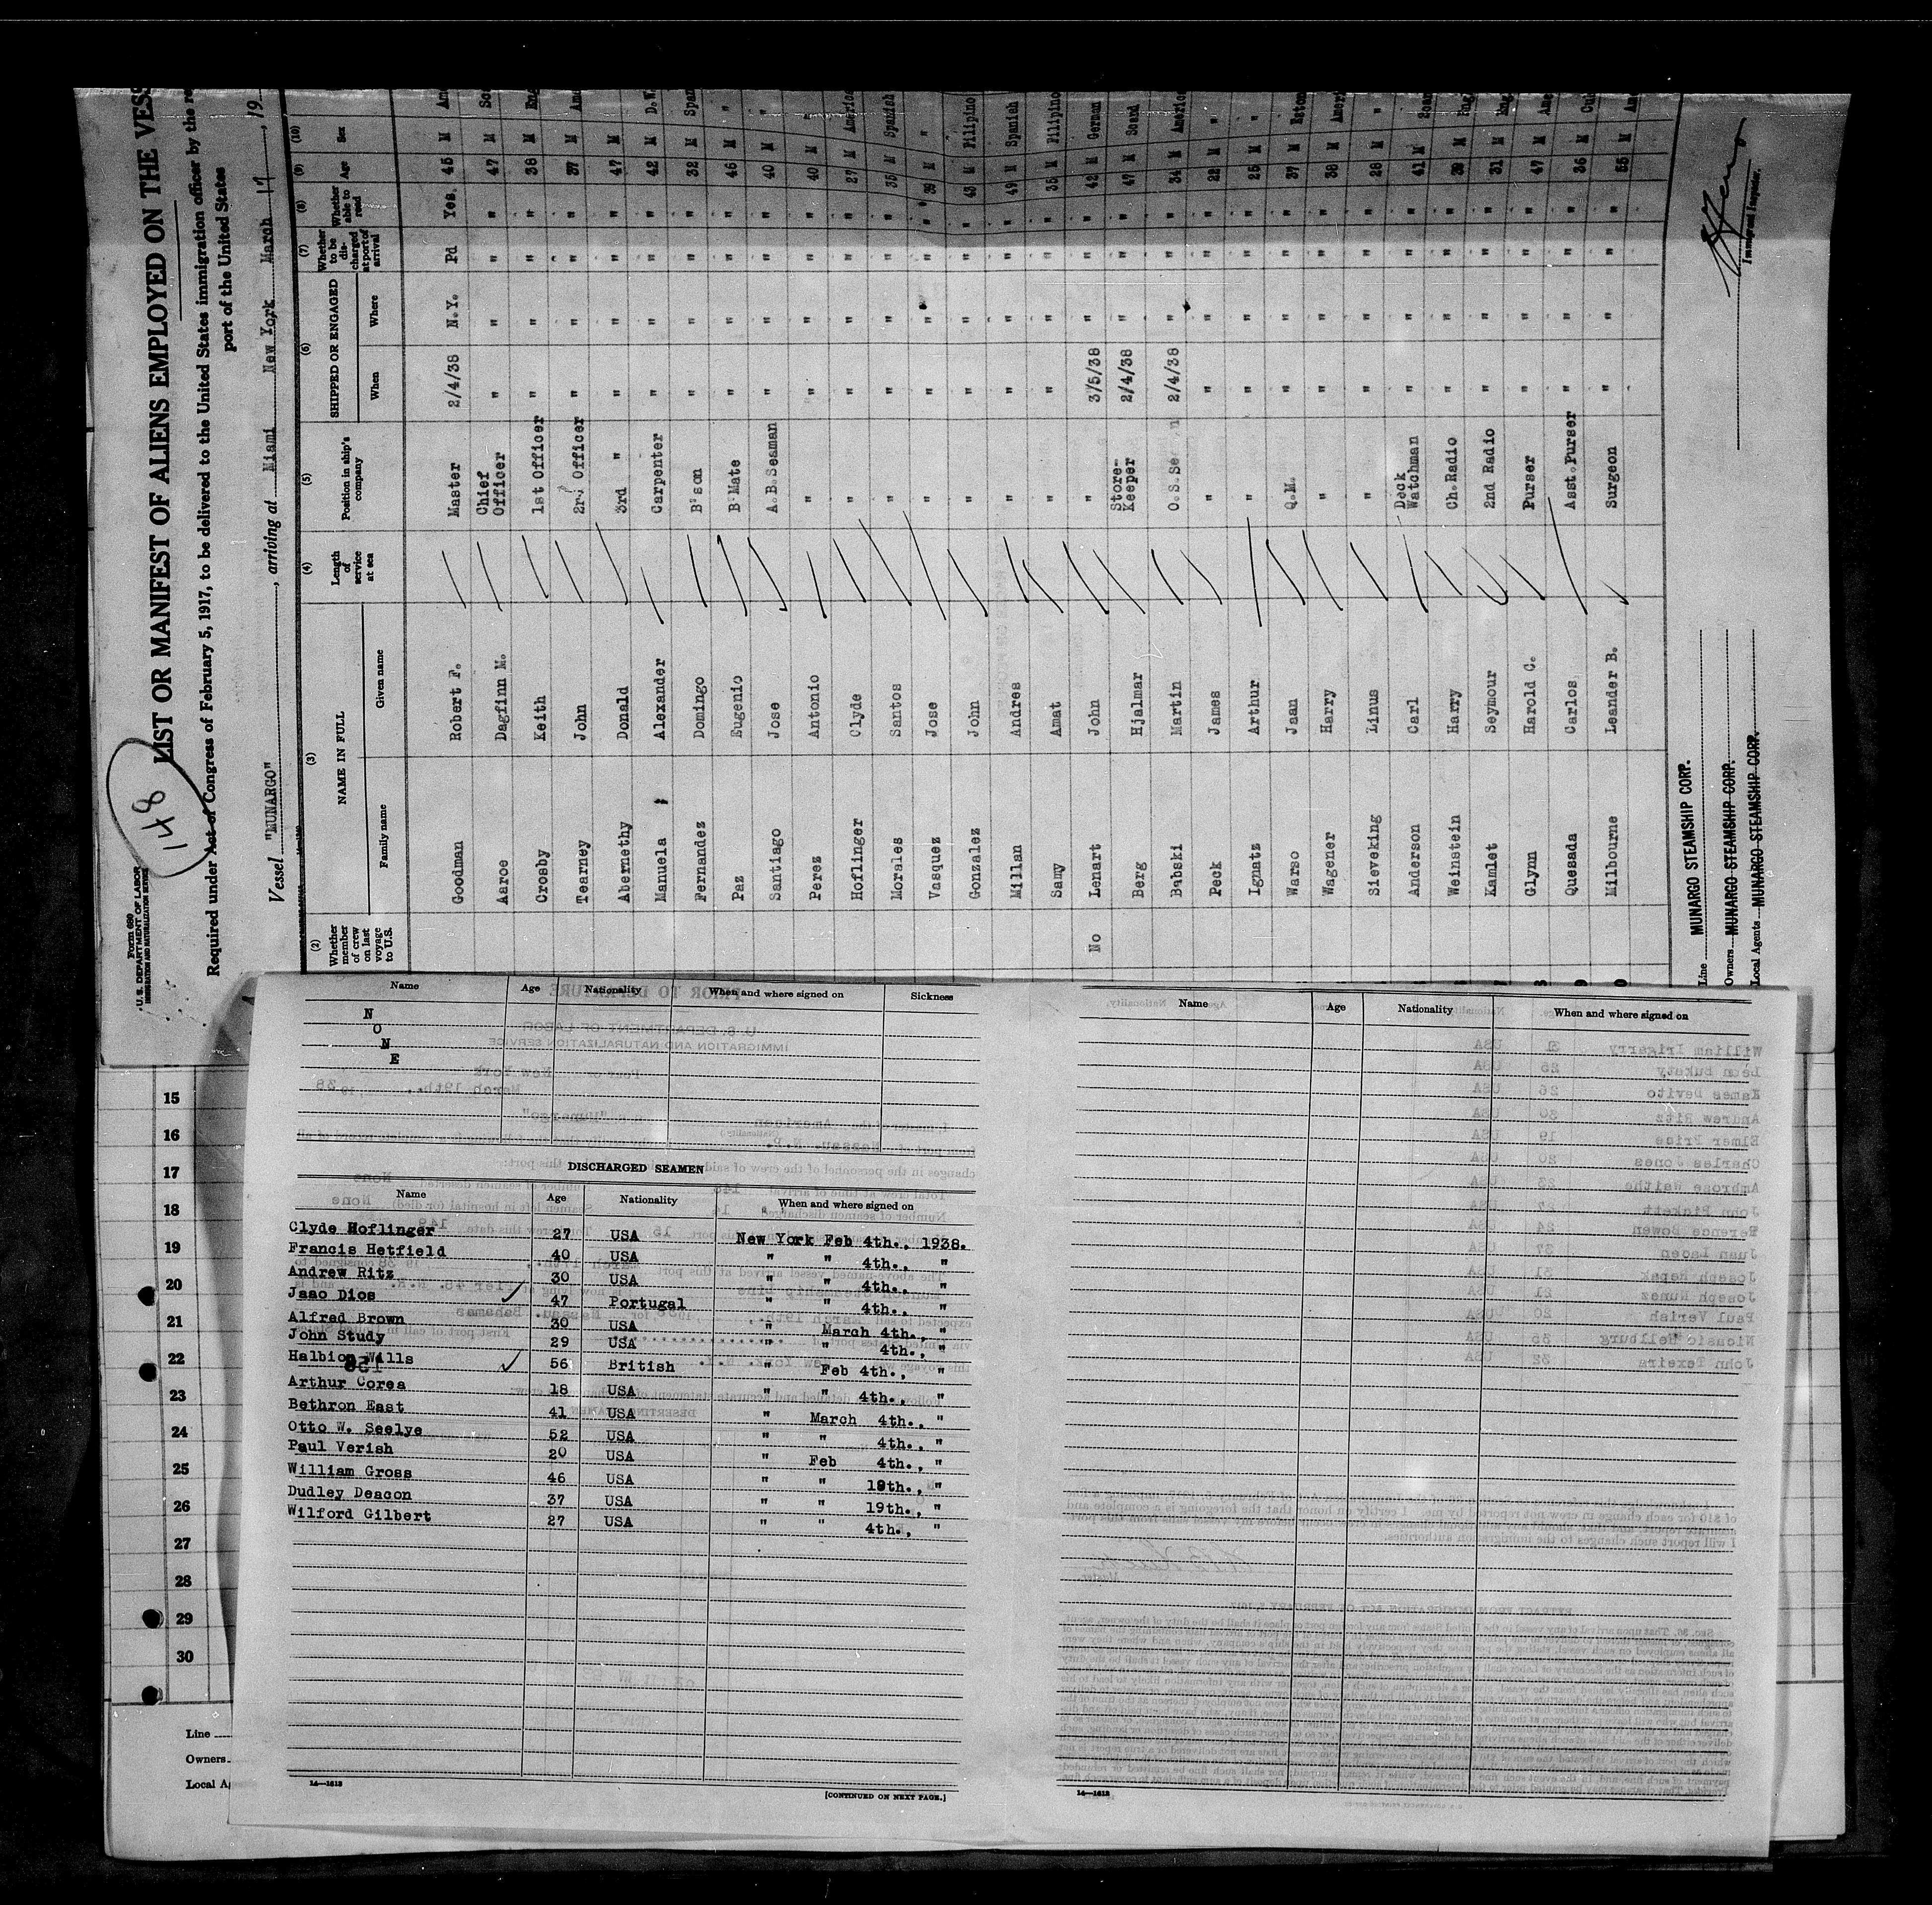 Form 680
U. S. DEPARTMENT OF LABOR
IMMIGRATION AND NATURALIZATION SERVICE
148
LIST OR MANIFEST OF ALIENS EMPLOYED ON THE VESS
Required under Act of Congress of February 5, 1917, to be delivered to the United States immigration officer by the re
port of the United States
Vessel "MUNARGO", arriving at Miami New York March 17, 19
(2) (3) (4) (5) (6) (7) (8) (9) (10)
Whether member of crew on last voyage to U.S. NAME IN FULL Family name Given name Length of service at sea Position in ship's company SHIPPED OR ENGAGED When Where Whether to be discharged at port of arrival Whether able to read Age Sex
Goodman Robert F. Master 2/4/38 N.Y. Pd Yes. 45 M
Aaroe Dagfinn M. Chief Officer " " " " 47 M
Crosby Keith 1st Officer " " " " 38 M
Tearney John 2nd Officer " " " " 37 M
Abernethy Donald 3rd " " " " " 47 M
Manuela Alexander Carpenter " " " " 42 M D.W.
Fernandez Domingo B'son " " " " 32 M Span
Paz Eugenio B'Mate " " " " 46 M "
Santiago Jose A.B.Seaman " " " " 40 M "
Perez Antonio " " " " " 40 M "
Hoflinger Clyde " " " " " 27 M America
Morales Santos " " " " " 35 M Spanish
Vasquez Jose " " " " " 39 M "
Gonzalez John " " " " " 43 M Filipino
Millan Andres " " " " " 49 M Spanish
Samy Amat " " " " " 35 M Filipino
No Lenart John " 3/5/38 " " " 42 M German
Berg Hjalmar Store-Keeper 2/4/38 " " " 47 M Scand
Babski Martin O.S.Sea n 2/4/38 " " " 34 M America
Peck James " " " " " 22 M "
Ignatz Arthur " " " " " 25 M "
Warso Jaan Q.M. " " " " 37 M Eston
Wagener Harry " " " " " 38 M Ameri
Sieveking Linus " " " " " 28 M "
Anderson Carl Deck Watchman " " " " 41 M Scan
Weinstein Harry Ch.Radio " " " " 39 M
Kamlet Seymour 2nd Radio " " " " 31 M
Glynn Harold C. Purser " " " " 47 M Ame
Quesada Carlos Asst.Purser " " " " 36 M
Milbourne Leander B. Surgeon " " " " 55 M
Line MUNARGO STEAMSHIP CORP.
Owners MUNARGO STEAMSHIP CORP.
Local Agents MUNARGO STEAMSHIP CORP.
Immigrant Inspector.
Name Age Nationality When and where signed on Sickness
N
O
N
E
DISCHARGED SEAMEN
Name Age Nationality When and where signed on
Clyde Hoflinger 27 USA New York Feb 4th., 1938.
Francis Hetfield 40 USA " " 4th., "
Andrew Ritz 30 USA " " 4th., "
Jaao Dios 47 Portugal " " 4th., "
Alfred Brown 30 USA " March 4th., "
John Study 29 USA " " 4th., "
Halbion Wills 56 British " Feb 4th., "
Arthur Corea 18 USA " " 4th., "
Bethron East 41 USA " March 4th., "
Otto W. Seelye 52 USA " " 4th., "
Paul Verish 20 USA " Feb 4th., "
William Gross 46 USA " " 18th., "
Dudley Deacon 37 USA " " 19th., "
Wilford Gilbert 27 USA " " 4th., "
14—1613
[CONTINUED ON NEXT PAGE.]
Name Age Nationality When and where signed on
14—1613
15
16
17
18
19
20
21
22
23
24
25
26
27
28
29
30
Line
Owners
Local Ag